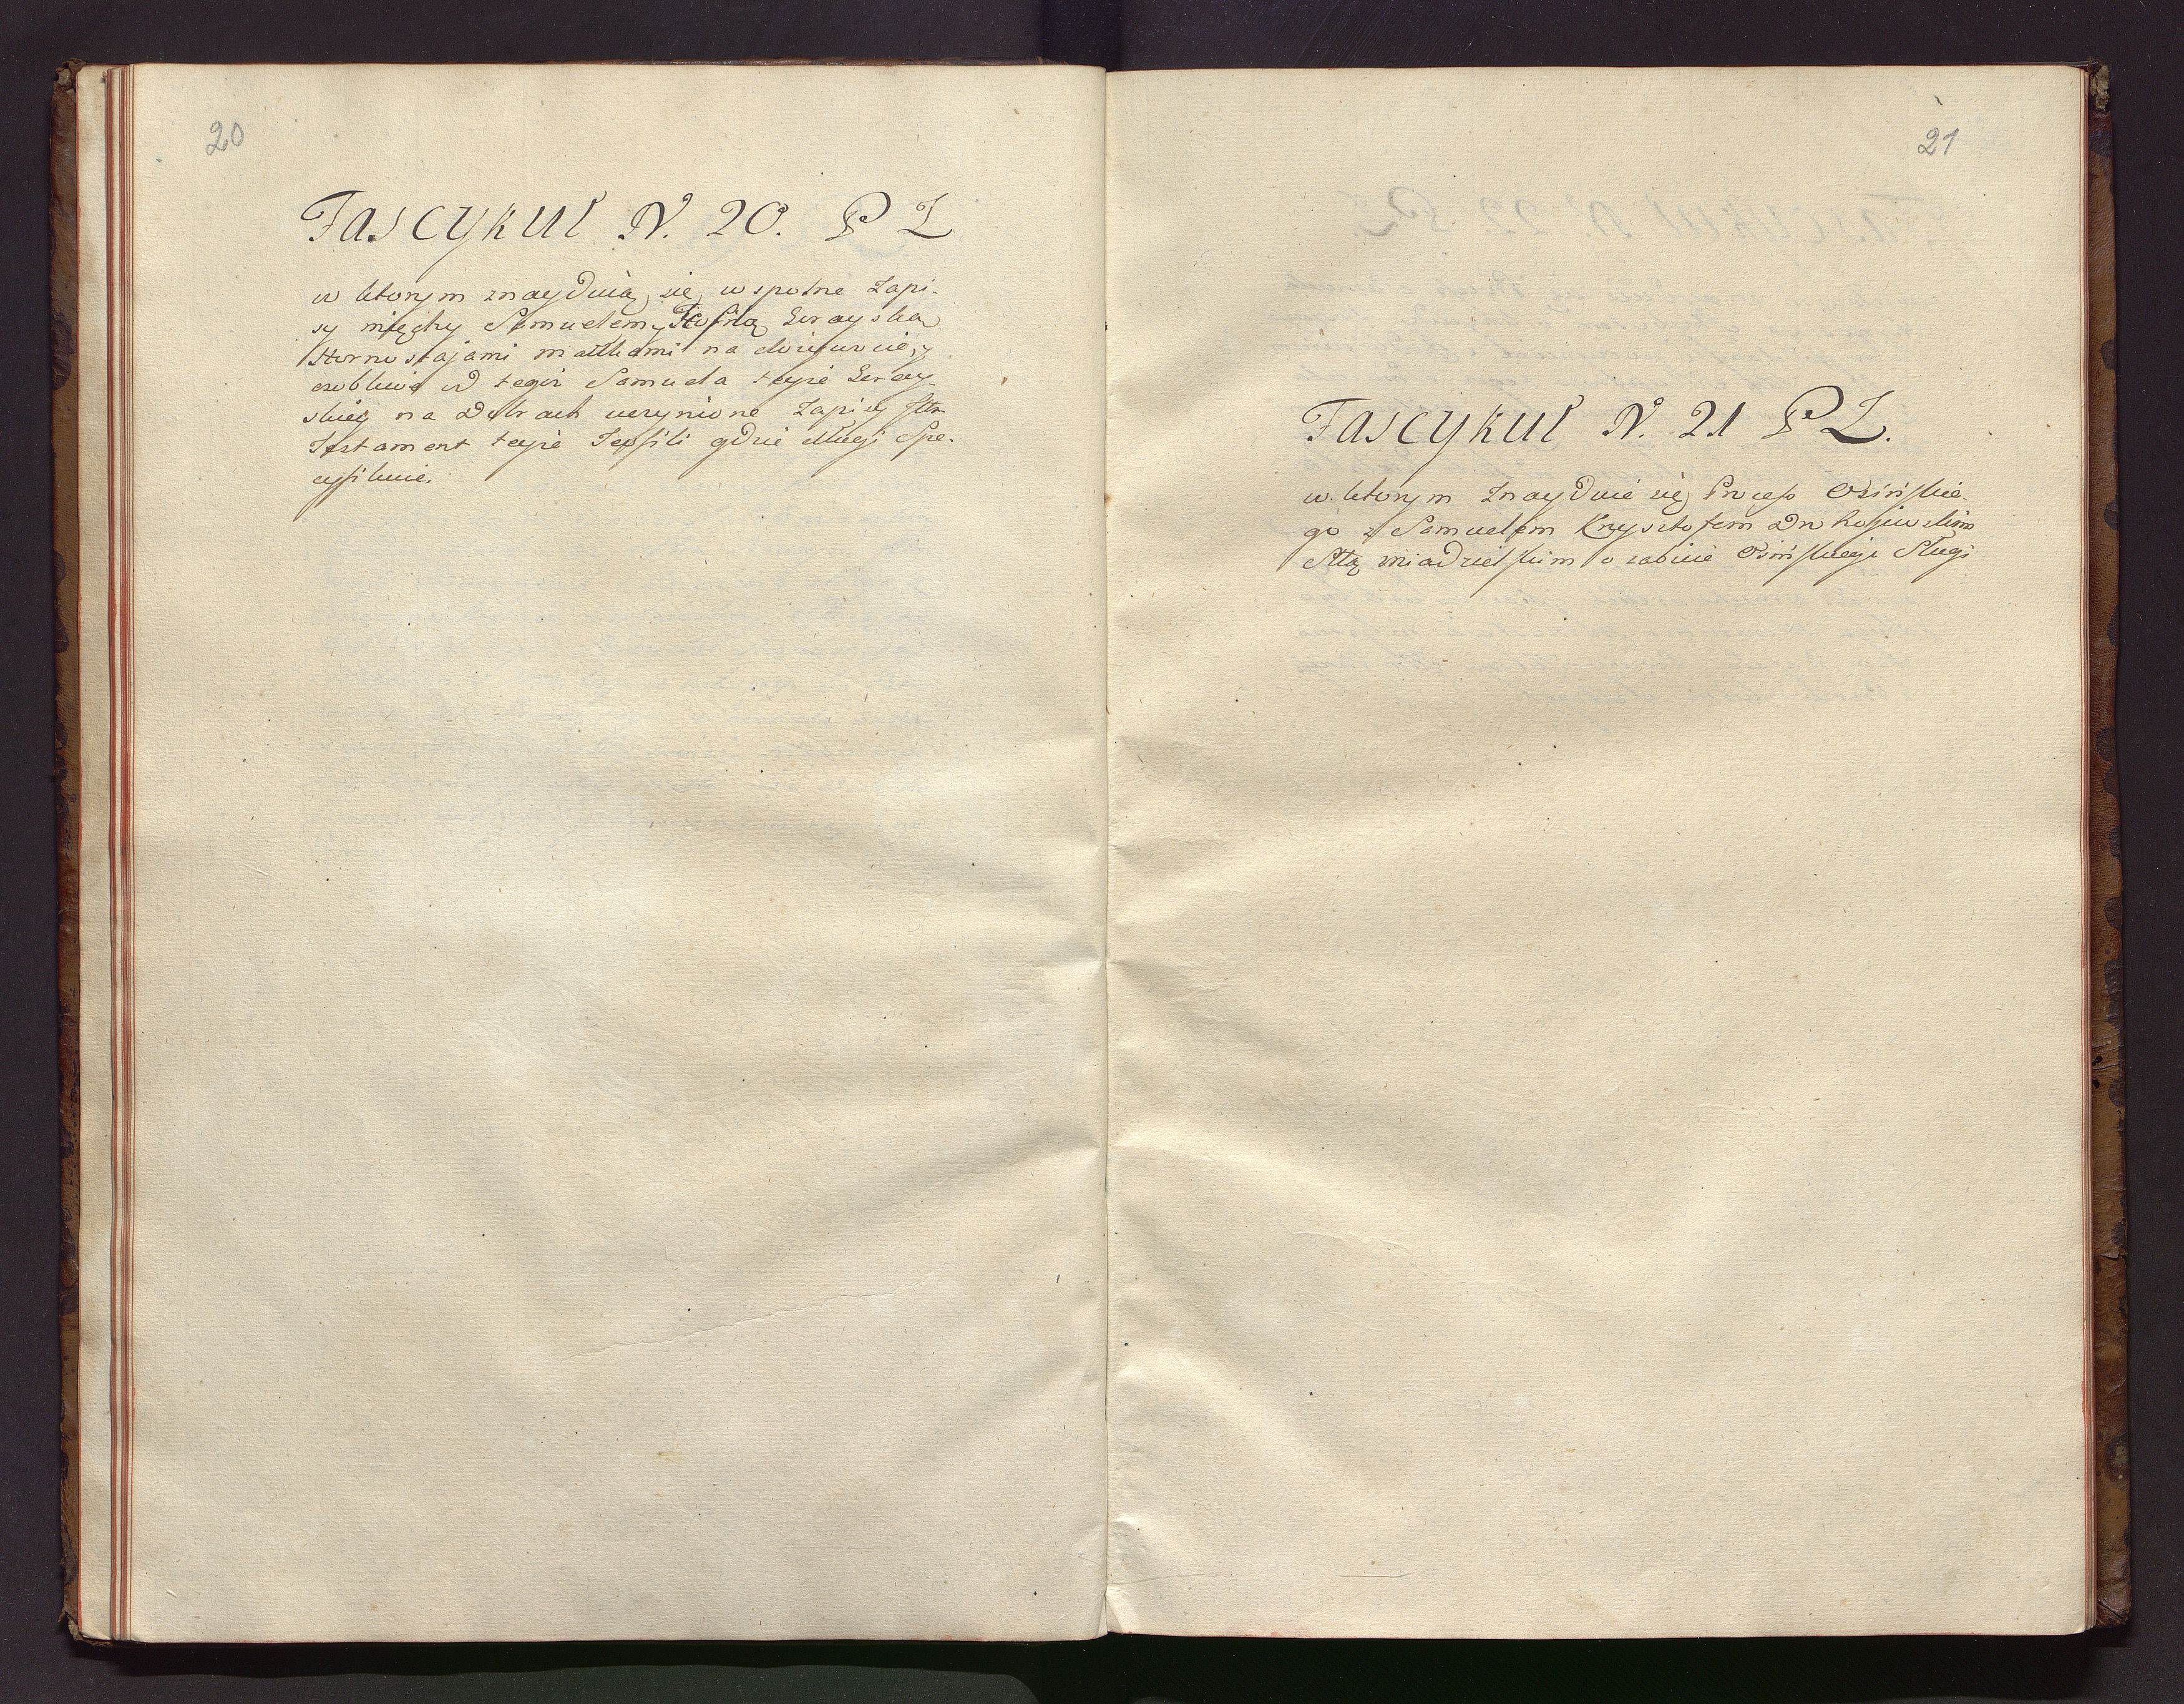 20
Fascykuł N. 20. P Z
w ktorym znayduią się wspolne Zapi-
sy między Samuelem, Teofilą
Hornostajami małżkami na dożywocie, y
osobliwie od tegoż Samuela teyże
na Dobrach uczynione Zapisy
Testament teyże Teofili gdzie długi Spe-
cyfikuie.
21
Fascykuł N. 21 P Z.
w ktorym Znayduie się Process Osinskie-
go z Samuelem Krzysztofem
Sttą miadzielskim o zabicie Osinskiego Sługi